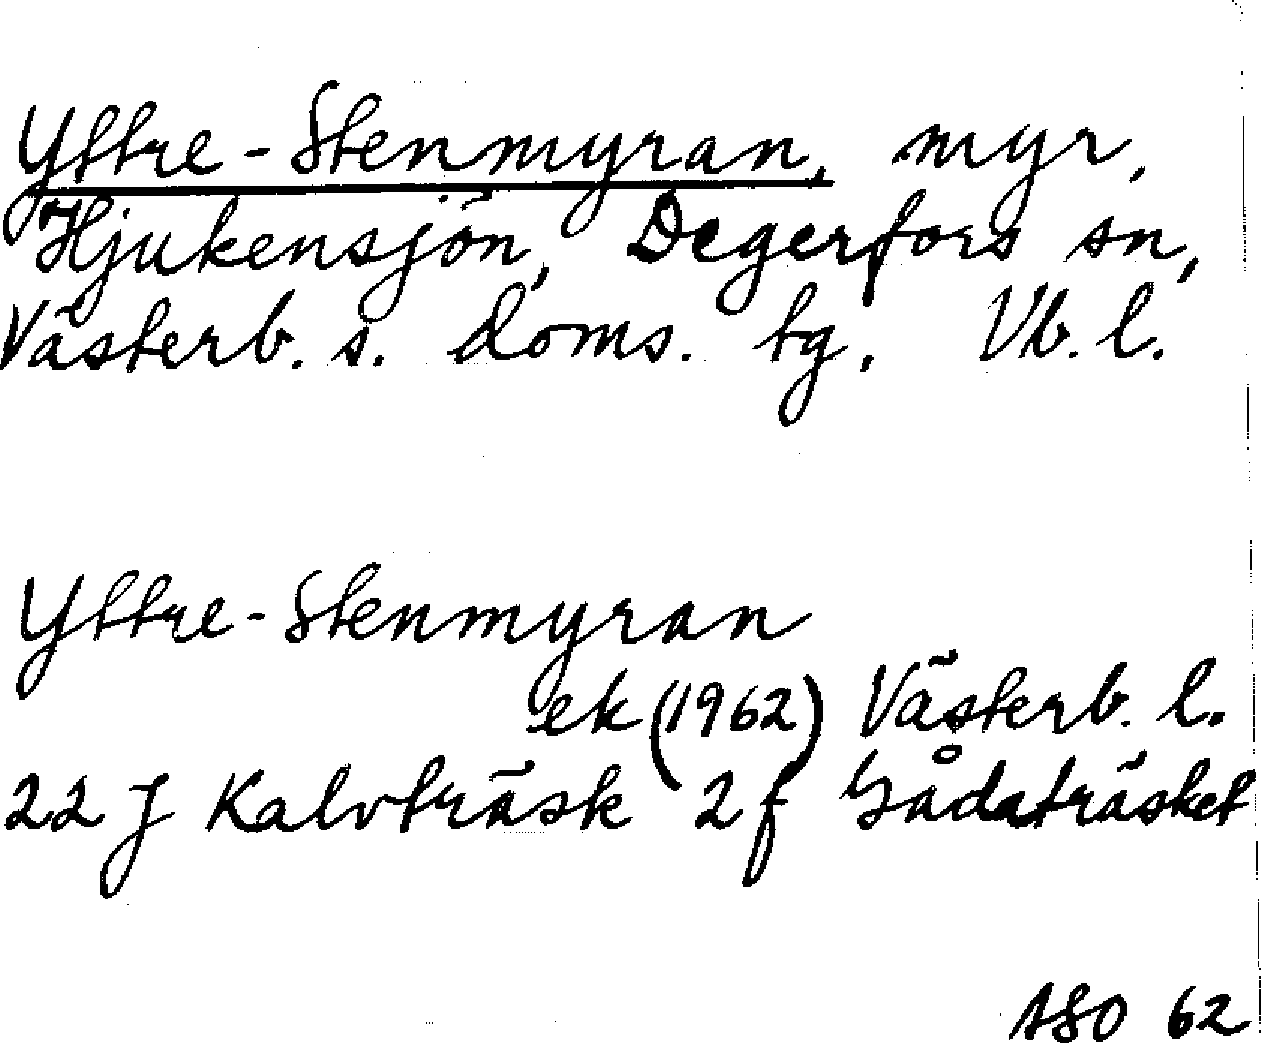 Yttre-Stenmyran, myr,
Hjukensjön, Degerfors sn,
Västerb. s. doms. tg. Vb. l.
Yttre-Stenmyran
ek (1962) Västerb. l.
22 J Kalvträsk 2f Gådaträsket
ASO 62